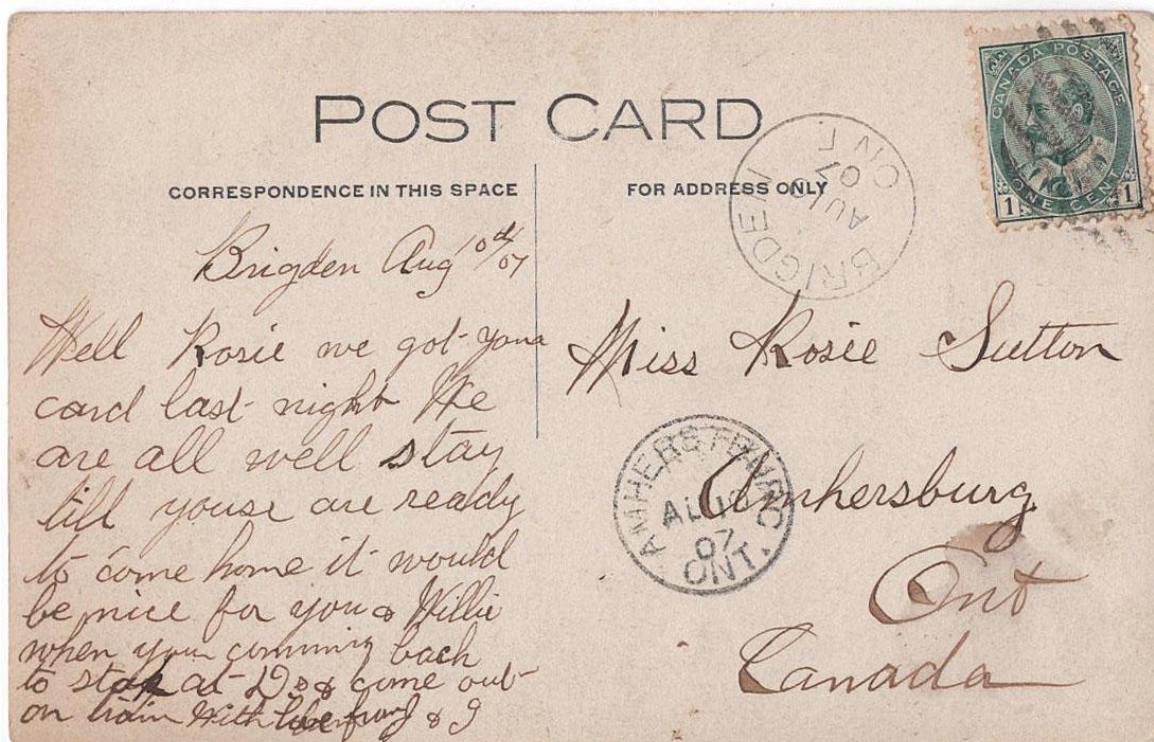 POST CARD
CORRESPONDENCE IN THIS SPACE
FOR ADDRESS ONLY
CANADA POSTAGE
1 ONE CENT 1
BRIGDEN
AU 10
07
ONT
Brigden Aug 10th/07
Well Rosie we got your
card last night We
are all well stay
till youse are ready
to come home it would
be nice for you & Willie
when your comming back
to stop at D & come out
on train With
Miss Rosie Sutton
Amhersburg
Ont
Canada
AMHERSTBURG
AU
07
ONT.